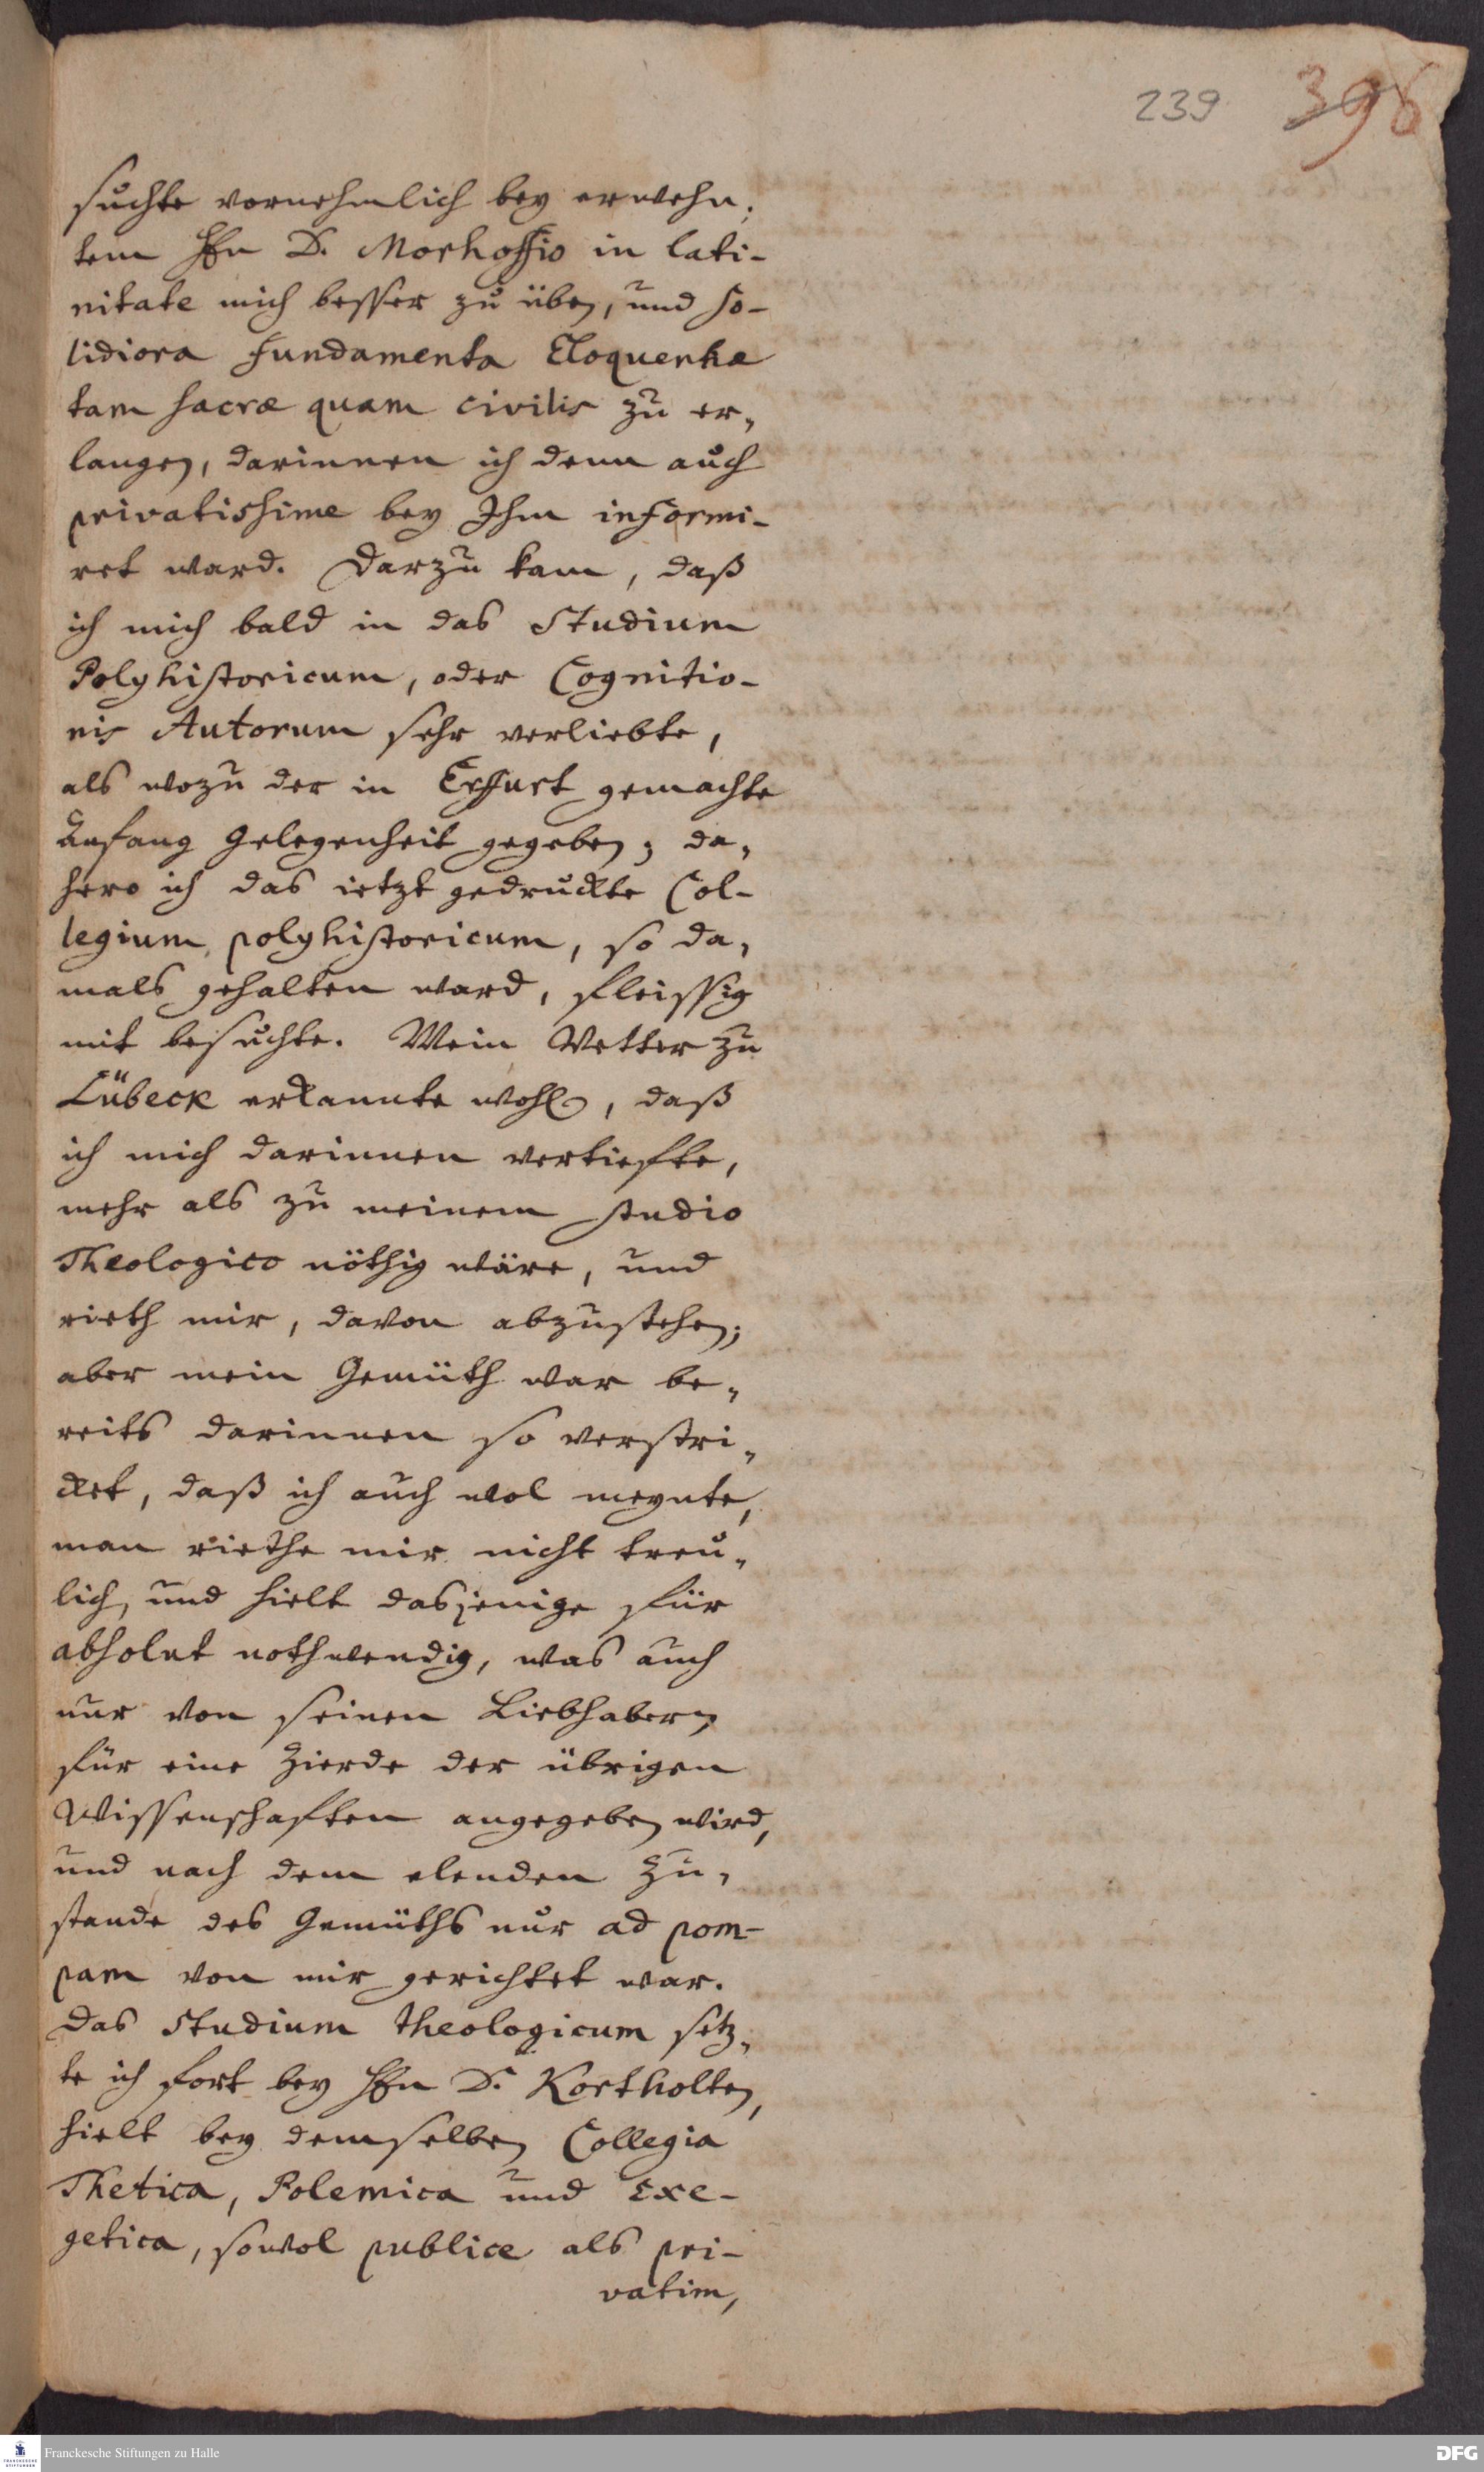 239 398
suchte vornehmlich bey erwehn,
tem Hn D. Morhoffio in lati-
nitate mich besser zu üben, und so-
lidiora fundamenta Eloquentiæ
tam sacræ quam civilis zu er,
langen, darinnen ich denn auch
privatissime bey Ihm informi-
ret ward. Darzu kam, daß
ich mich bald in das Studium
Polyhistoricum, oder Cognitio-
nis Autorum sehr verliebte,
als wozu der in Erffurt gemachte
Anfang Gelegenheit gegeben; da,
hero ich das ietzt gedruckte Col-
legium polyhistoricum, so da,
mals gehalten ward, fleissig
mit besuchte. Mein Vetter zu
Lübeck erkannte wohl, daß
ich mich darinnen vertieffte,
mehr als zu meinem studio
Theologico nöthig wäre, und
rieth mir, davon abzustehen;
aber mein Gemüth war be,
reits darinnen so verstri,
cket, daß ich auch wol meynte,
man riethe mir nicht treu,
lich, und hielt dasjenige für
absolut nothwendig, was auch
nur von seinen Liebhabern
für eine Zierde der übrigen
Wissenschafften angegeben wird,
und nach dem elenden Zu,
stande des Gemüths nur ad pom-
pam von mir gerichtet war.
Das Studium theologicum setz,
te ich fort bey Hn D. Kortholten,
hielt bey demselben Collegia
Thetica, Polemica und Exe-
getica, sowol publice als pri-
vatim,
Franckesche Stiftungen zu Halle
DFG